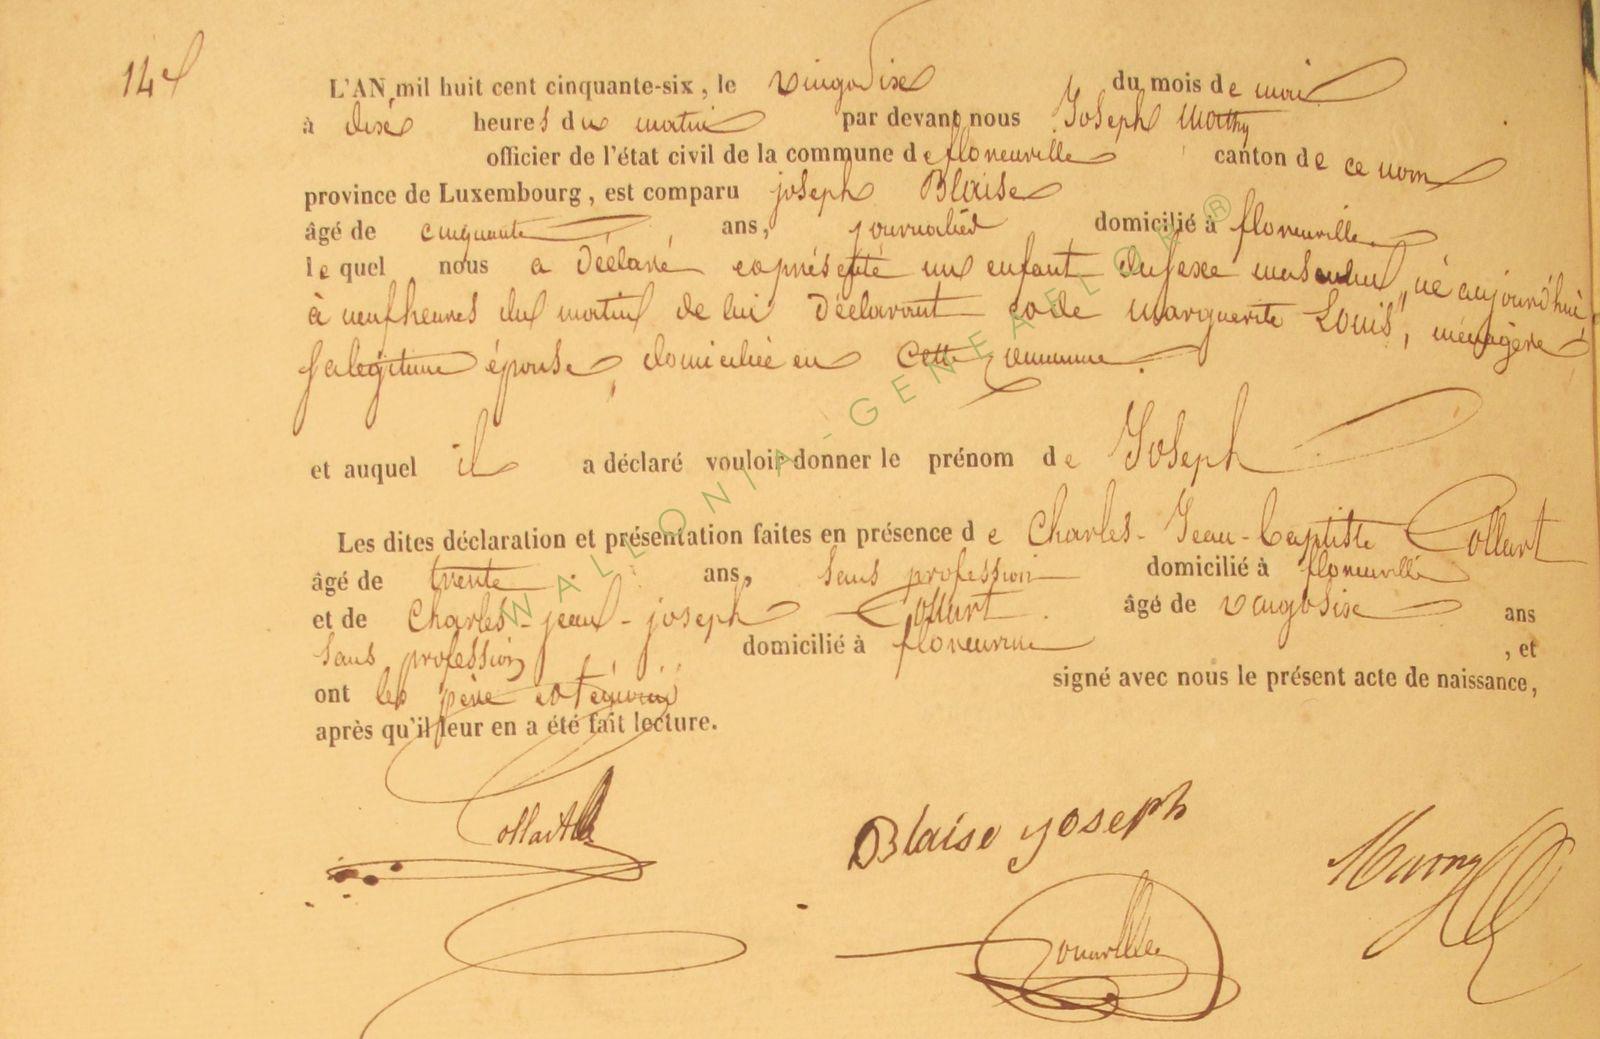 14
L'AN mil huit cent cinquante-six, le vingt Six du mois de mai
à dix heures du matin par devant nous Joseph
officier de l'état civil de la commune de florenville canton de ce nom
province de Luxembourg, est comparu joseph Blaise
âgé de cinquante ans, journalier domicilié à florenville
le quel nous a Déclaré et présenté un enfant du sexe masculin, né aujourd'hui
à neuf heures du matin de lui Déclarant et de marguerite Louis, ménagère
sa légitime épouse, domiciliée en cette commune.
et auquel il a déclaré vouloir donner le prénom de Joseph
Les dites déclaration et présentation faites en présence de Charles-Jean-baptiste Collart
âgé de trente ans, sans profession domicilié à florenville
et de Charles-jean-joseph Collart âgé de vingt six ans
sans profession domicilié à florenville, et
ont les père et témoins signé avec nous le présent acte de naissance,
après qu'il leur en a été fait lecture.
Blaise joseph
WALLONIA-GENEALOGY®